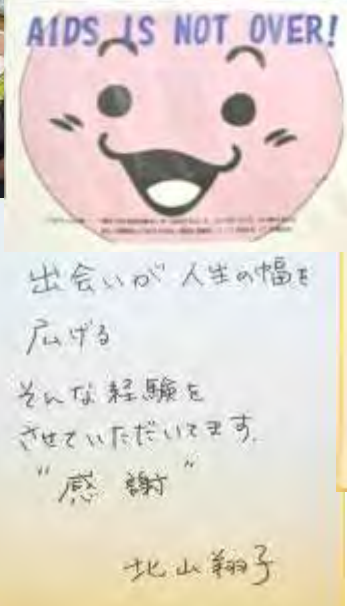 AIDS IS NOT OVER!
出会いが 人生の幅を
広げる
そんな経験を
させていただいてます.
"感謝"
北山翔子